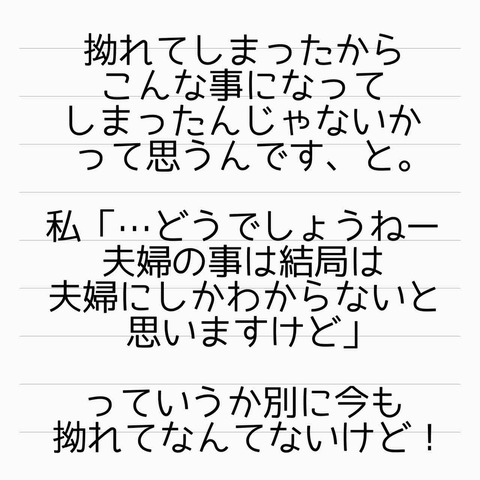 拗れてしまったから
こんな事になって
しまったんじゃないか
って思うんです、と。
私「…どうでしょうねー
夫婦の事は結局は
夫婦にしかわからないと
思いますけど」
っていうか別に今も
拗れてなんてないけど！